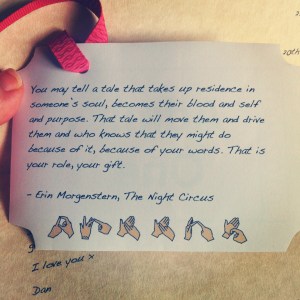 You may tell a tale that takes up residence in
someone's soul, becomes their blood and self
and purpose. That tale will move them and drive
them and who knows that they might do
because of it, because of your words. That is
your role, your gift.
- Erin Morgenstern, The Night Circus
20th
I love you x
Dan